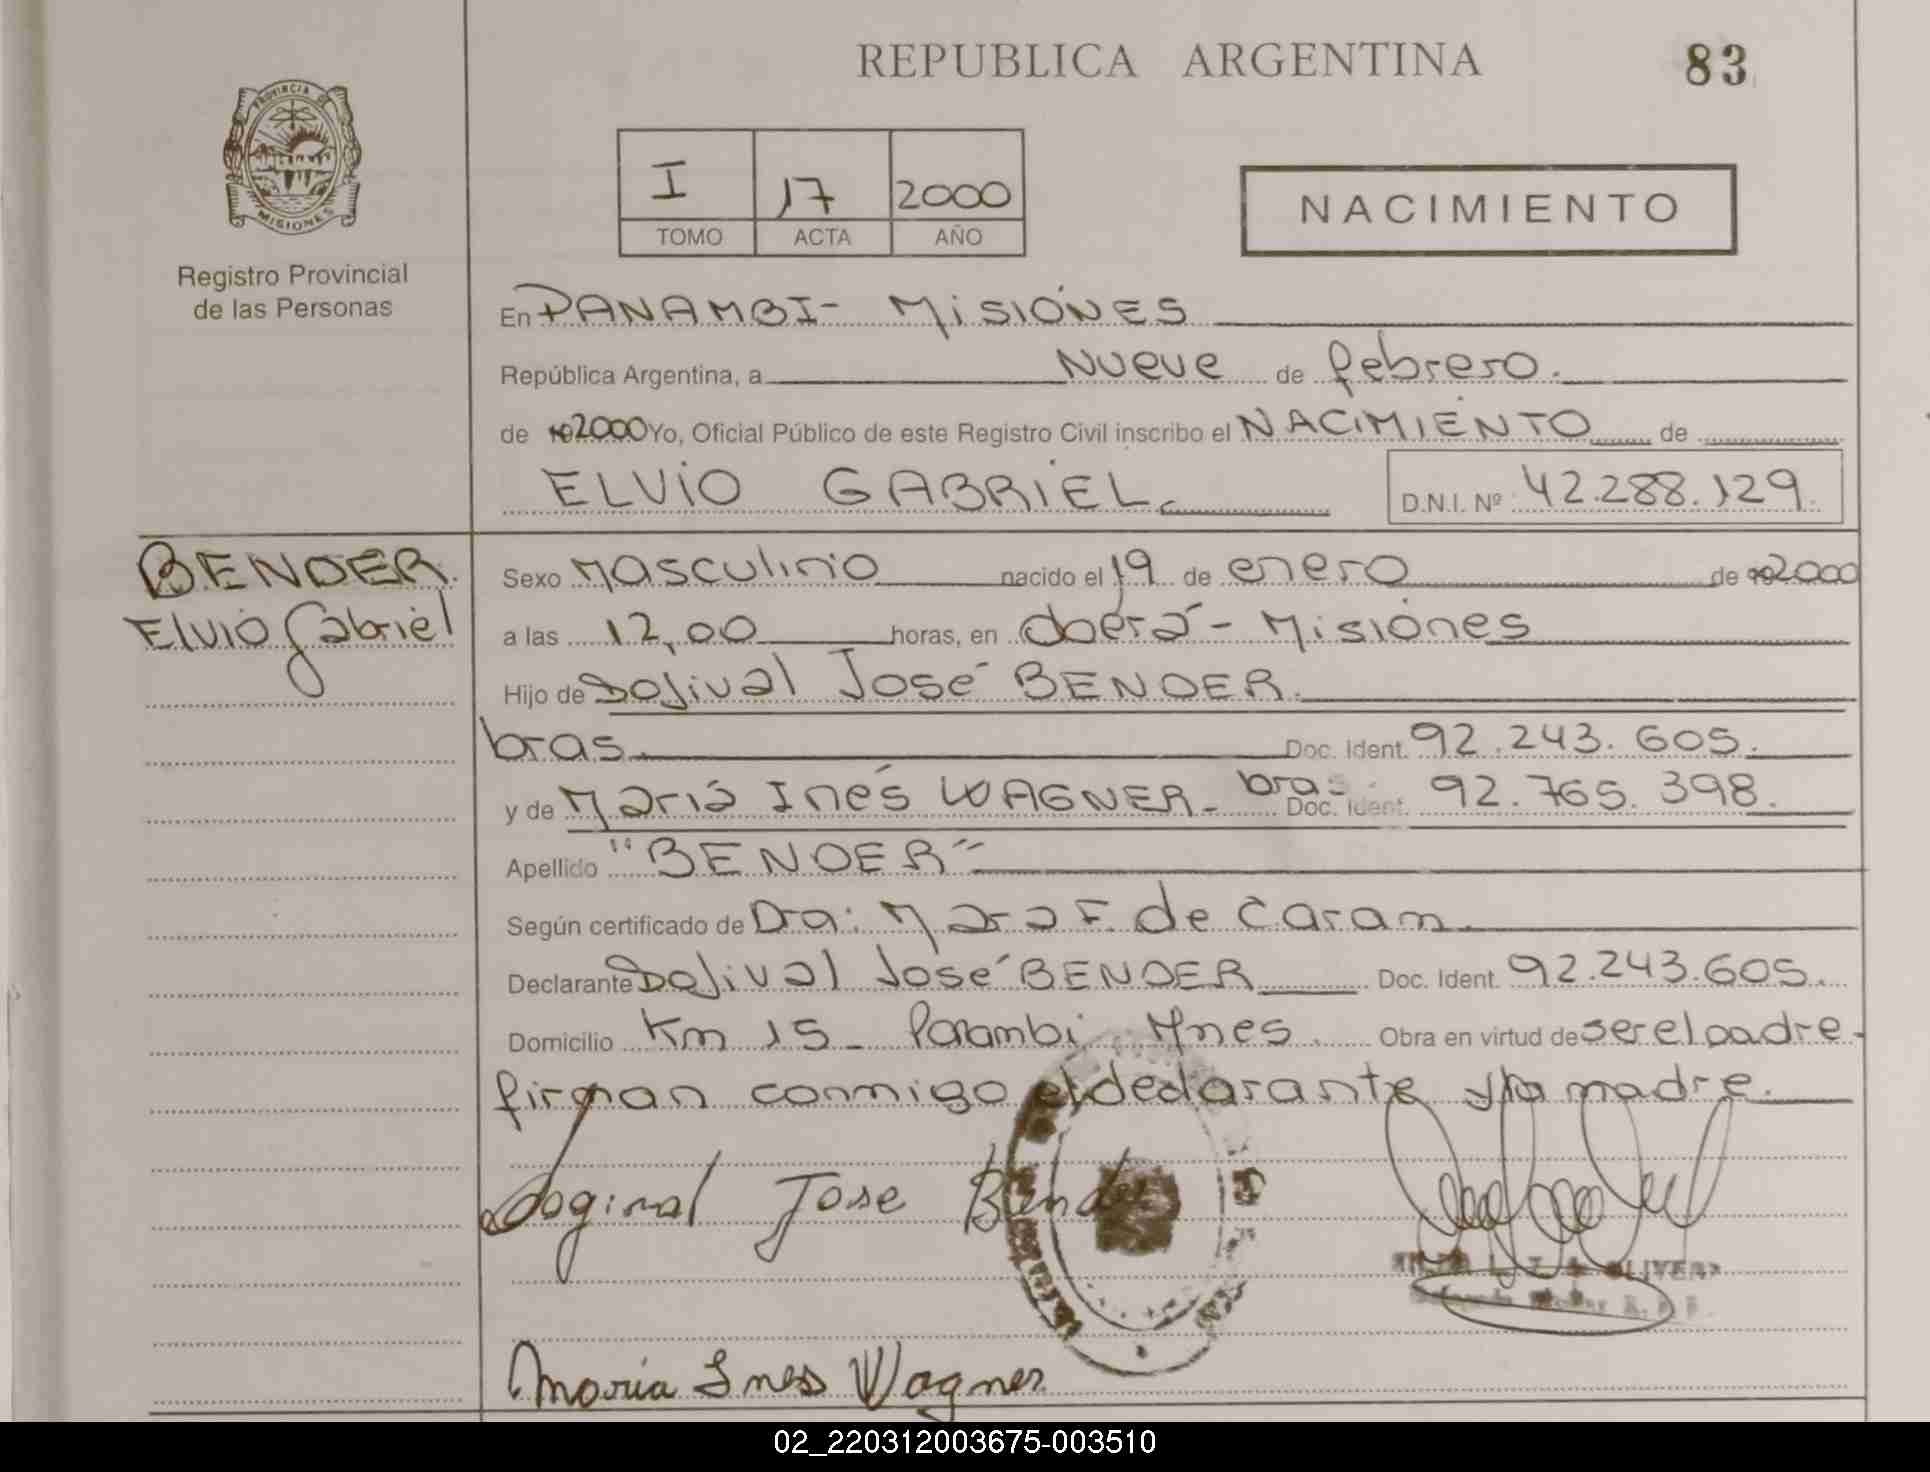 REPUBLICA ARGENTINA
83
PROVINCIA DE
MISIONES
Registro Provincial
de las Personas
I 17 2000
TOMO ACTA AÑO
NACIMIENTO
En PANAMBI - MISIONES
República Argentina, a Nueve de febrero.
de 192000 Yo, Oficial Público de este Registro Civil inscribo el NACIMIENTO de
ELVIO GABRIEL
D.N.I. Nº 42.288.129
BENDER
Elvio Gabriel
Sexo Masculino nacido el 19 de enero de 192000
a las 12,00 horas, en Oberá - Misiones
Hijo de Dojival José BENDER.
bras. Doc. Ident. 92.243.605.
y de María Inés WAGNER - bras. Doc. Ident. 92.765.398.
Apellido "BENDER"
Según certificado de Dra: Mara F. de Caram.
Declarante Dojival José BENDER Doc. Ident. 92.243.605.
Domicilio Km 15 - Panambi Mnes. Obra en virtud de ser el padre -
firman conmigo el declarante y la madre.
Doginal Jose Bender
OLIVERA
María Ines Wagner
02_220312003675-003510